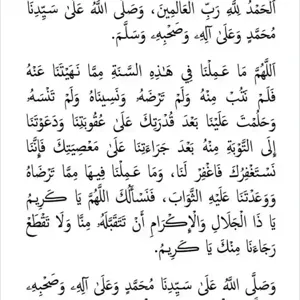 اَلْحَمْدُ لِلَّهِ رَبِّ الْعَالَمِينَ، وَصَلَّى اللَّهُ عَلَىٰ سَيِّدِنَا
مُحَمَّدٍ وَعَلَىٰ آلِهِۦ وَصَحْبِهِۦ وَسَلَّمَ.
اَللَّهُمَّ مَا عَمِلْنَا فِي هَٰذِهِ السَّنَةِ مِمَّا نَهَيْتَنَا عَنْهُ
فَلَمْ نَتُبْ مِنْهُ وَلَمْ تَرْضَهُ وَنَسِينَاهُ وَلَمْ تَنْسَهُ،
وَحَلُمْتَ عَلَيْنَا بَعْدَ قُدْرَتِكَ عَلَىٰ عُقُوبَتِنَا وَدَعَوْتَنَا
إِلَى التَّوْبَةِ مِنْهُ بَعْدَ جَرَاءَتِنَا عَلَىٰ مَعْصِيَتِكَ فَإِنَّنَا
نَسْتَغْفِرُكَ فَاغْفِرْ لَنَا، وَمَا عَمِلْنَا فِيهَا مِمَّا تَرْضَاهُ
وَوَعَدْتَنَا عَلَيْهِ الثَّوَابَ، فَنَسْأَلُكَ اللَّهُمَّ يَا كَرِيمُ
يَا ذَا الْجَلَالِ وَالْإِكْرَامِ أَنْ تَتَقَبَّلَهُ مِنَّا وَلَا تَقْطَعْ
رَجَاءَنَا مِنْكَ يَا كَرِيمُ.
وَصَلَّى اللَّهُ عَلَىٰ سَيِّدِنَا مُحَمَّدٍ وَعَلَىٰ آلِهِۦ وَصَحْبِهِۦ